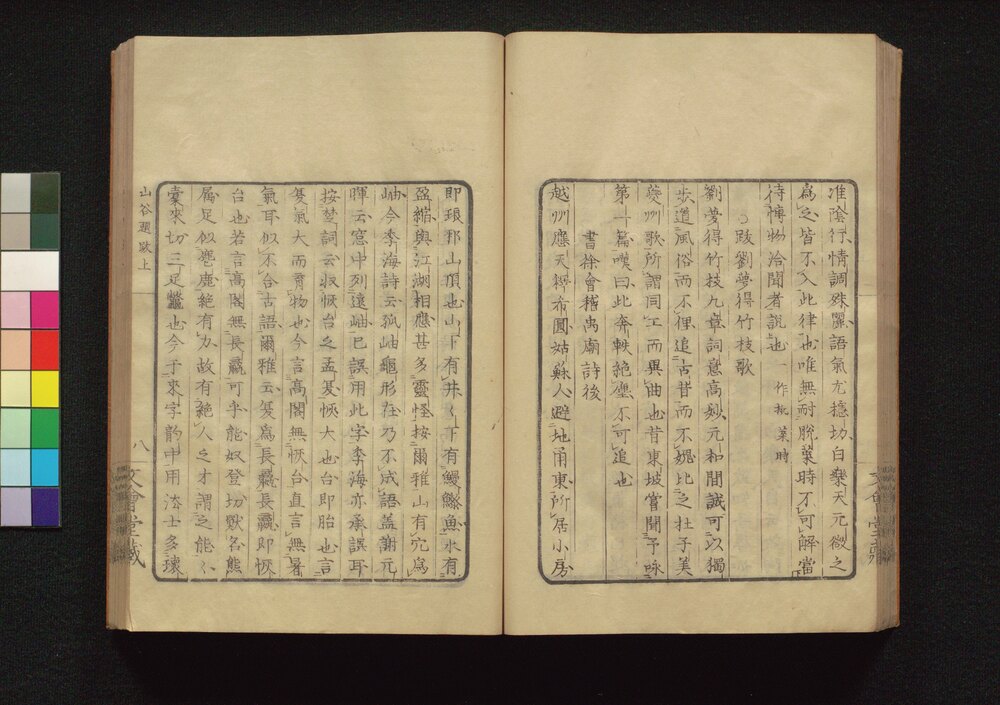 淮陰行情調殊麗語氣尤穩切白樂天元微之
爲之皆不入此律也唯無耐脫菜時不可解當
待博物洽聞者說也 一作挑菜時
跋劉夢得竹枝歌
劉夢得竹枝九章詞意高妙元和間誠可以獨
步道風俗而不俚追古昔而不媿比之杜子美
夔州歌所謂同工而異曲也昔東坡嘗聞予咏
第一篇嘆曰此奔軼絶塵不可追也
書徐會稽禹廟詩後
越州應天禪布圓姑蘇人避地甬東所居小房
即琅邪山頂也山下有井〻下有鰻鱺魚水有
盈縮與江湖相應甚多靈怪按爾雅山有穴爲
岫今季海詩云孤岫龜形在乃不成語蓋謝元
暉云窓中列遠岫已誤用此字季海亦承誤耳
按楚詞云收恢台之孟夏恢大也台即胎也言
夏氣大而育物也今言高閣無恢台直言無暑
氣耳似不合古語爾雅云夏爲長嬴長嬴即恢
台也若言高閣無長嬴可乎能奴登切獸名熊
属足似麃鹿絶有力故有絶人之才謂之能〻
囊來切三足鼈也今于來字韵中用法士多瓌
山谷題跋上
八
文會堂藏